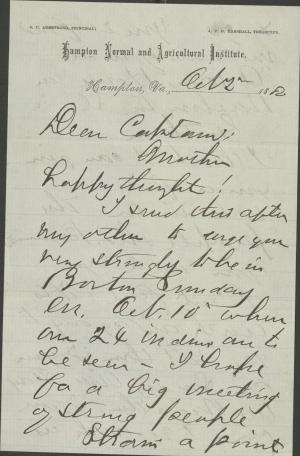 S. C. ARMSTRONG, PRINCIPAL. J. F. B. MARSHALL, TREASURER.
Hampton Normal and Agricultural Institute.
Hampton, Va., Oct 2 1880
Dear Captain;
Another
happy thought!
I send this after
my other to urge you
very strongly to be in
Boston Sunday
eve. Oct. 10 when
our 24 indians are to
be seen – I hope
for a big meeting
of strong people
Strain a point